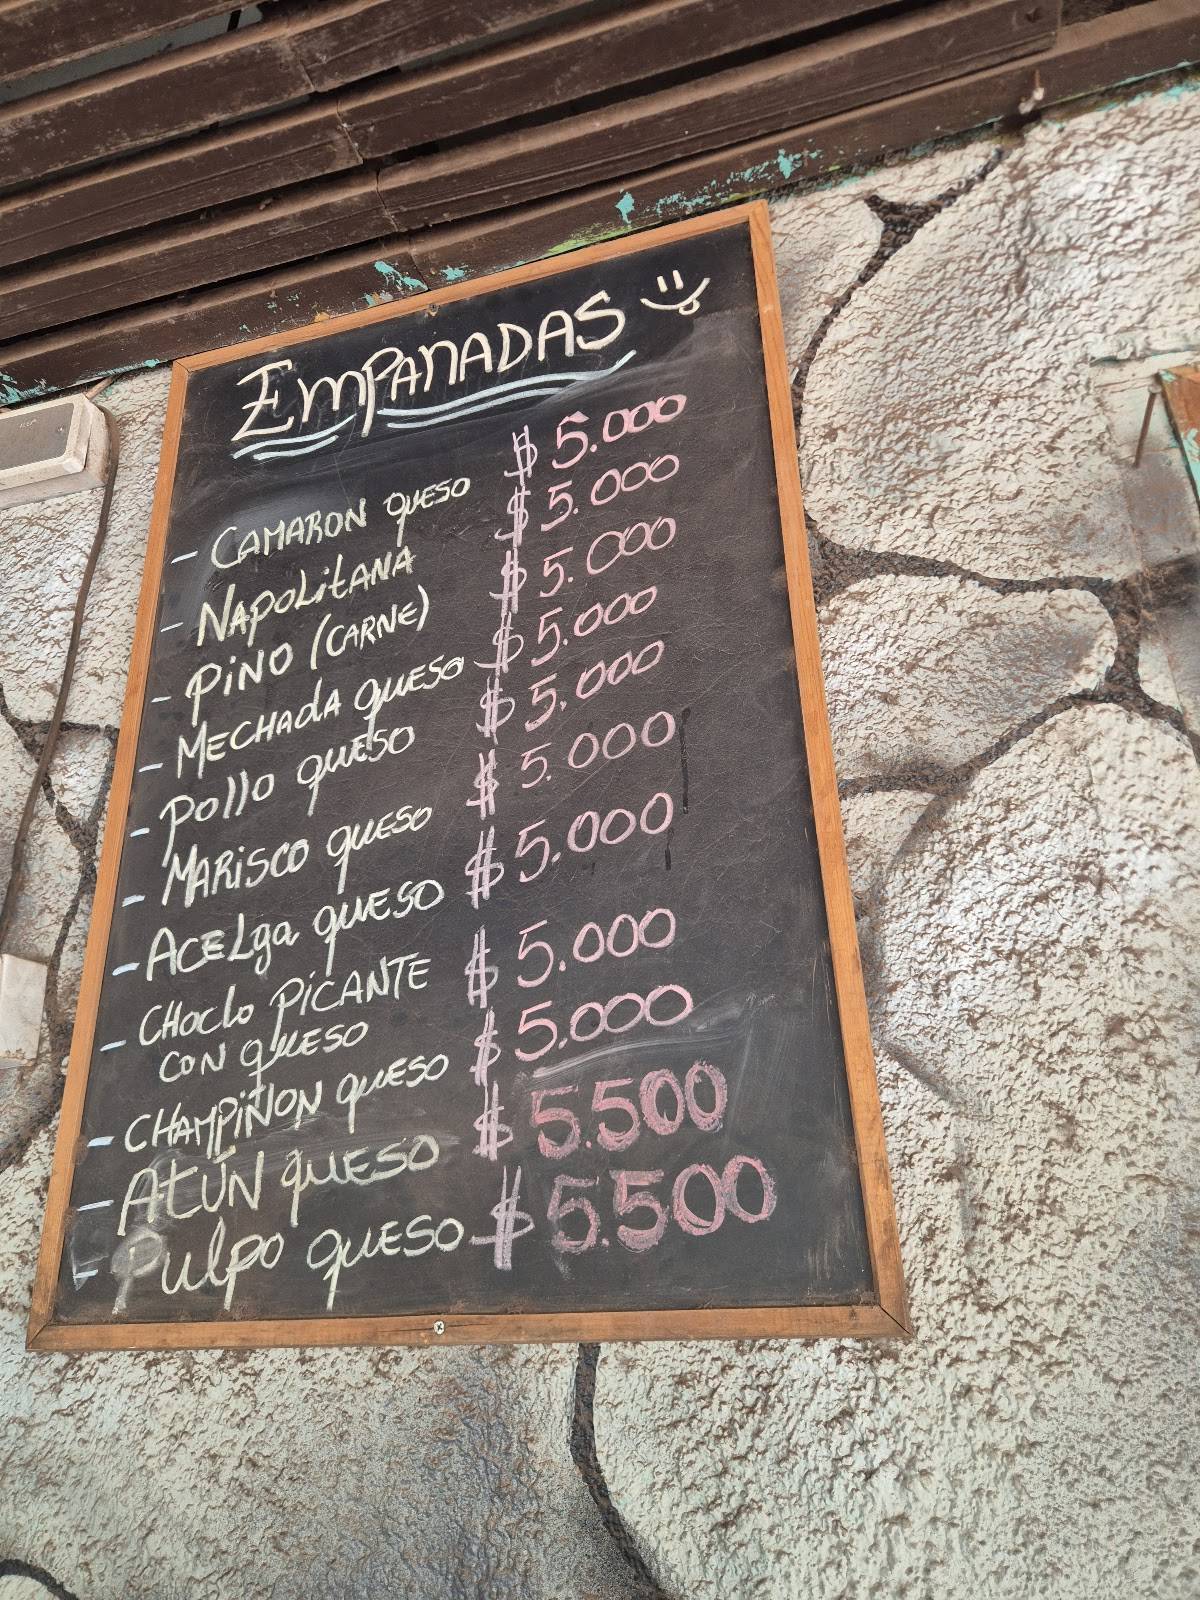 EMPANADAS
- CAMARON QUESO $ 5.000
- NAPOLITANA $ 5.000
- PINO (CARNE) $ 5.000
- MECHADA QUESO $ 5.000
- POLLO QUESO $ 5.000
- MARISCO QUESO $ 5.000
- ACELGA QUESO $ 5.000
- CHOCLO PICANTE $ 5.000
CON QUESO
- CHAMPIÑON QUESO $ 5.000
- ATÚN QUESO $ 5.500
- PULPO QUESO $ 5.500